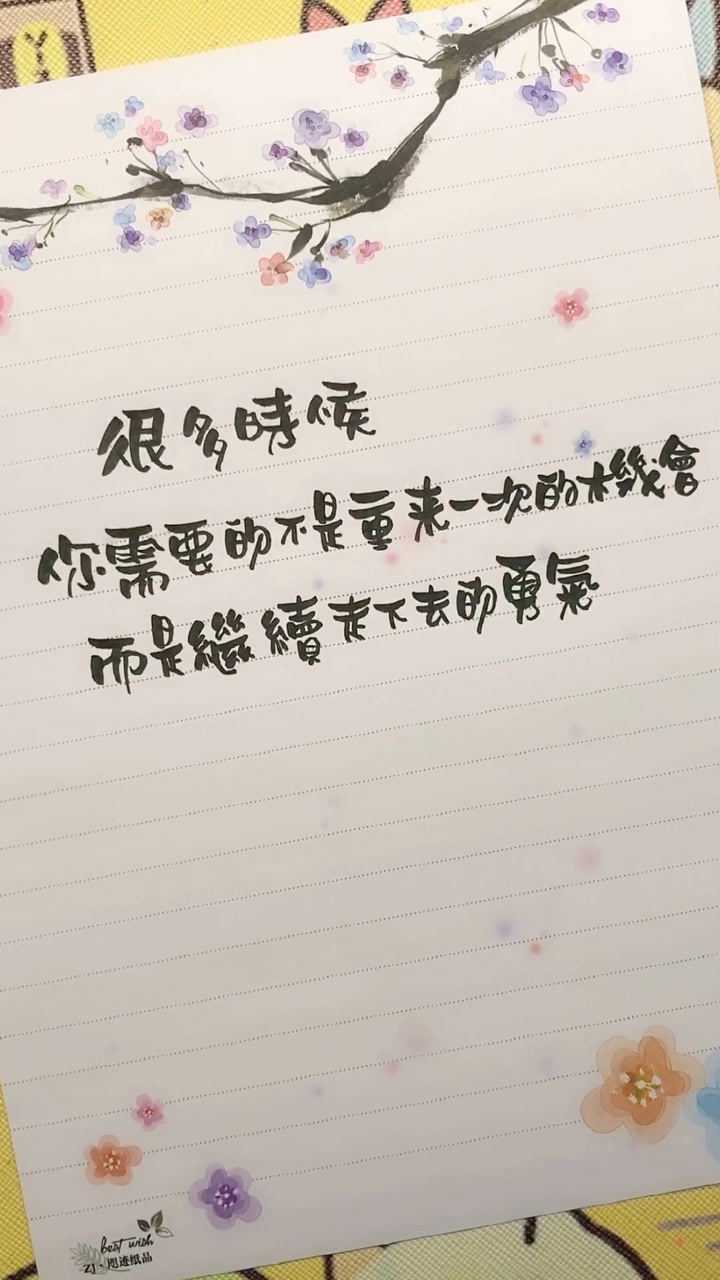 很多時候
你需要的不是重来一次的機會
而是繼續走下去的勇氣
best wish
ZJ·周迹纸品